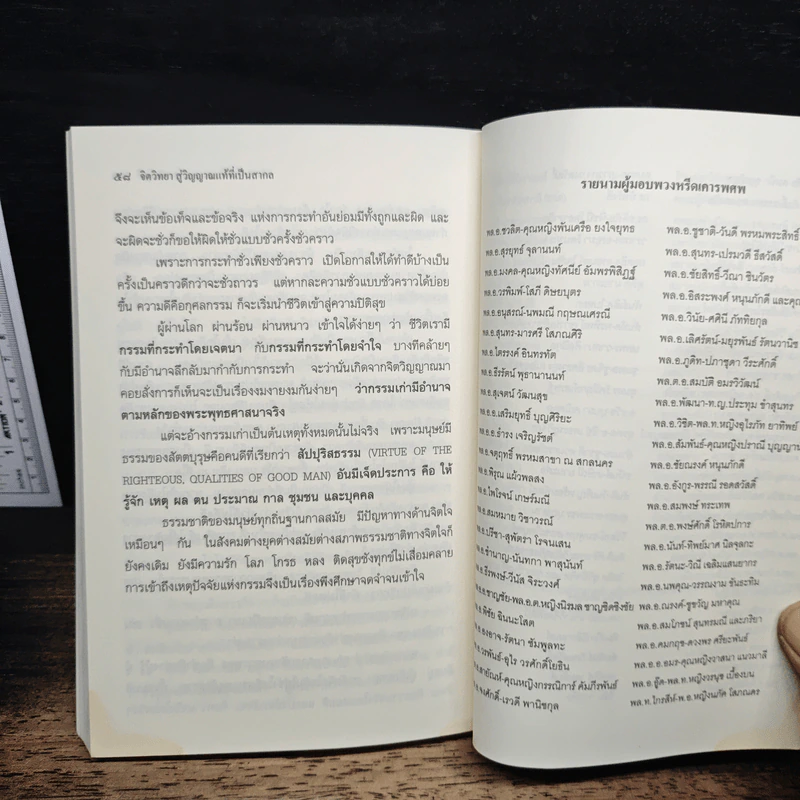 ๕๘ จิตวิทยา สู่วิญญาณแท้ที่เป็นสากล
จึงจะเห็นข้อเท็จและข้อจริง แห่งการกระทำอันย่อมมีทั้งถูกและผิด และ
จะผิดจะชั่วก็ขอให้ผิดให้ชั่วแบบชั่วครั้งชั่วคราว
เพราะการกระทำชั่วเพียงชั่วคราว เปิดโอกาสให้ได้ทำดีบ้างเป็น
ครั้งเป็นคราวดีกว่าจะชั่วถาวร แต่หากละความชั่วแบบชั่วคราวได้บ่อย
ขึ้น ความดีคือกุศลกรรม ก็จะเริ่มนำชีวิตเข้าสู่ความปิติสุข
ผู้ผ่านโลก ผ่านร้อน ผ่านหนาว เข้าใจได้ง่ายๆ ว่า ชีวิตเรามี
กรรมที่กระทำโดยเจตนา กับกรรมที่กระทำโดยจำใจ บางทีคล้ายๆ
กับมีอำนาจลึกลับมากำกับการกระทำ จะว่านั่นเกิดจากจิตวิญญาณมา
คอยสั่งการก็เห็นจะเป็นเรื่องงมงายงมกันง่ายๆ ว่ากรรมเก่ามีอำนาจ
ตามหลักของพระพุทธศาสนาจริง
แต่จะอ้างกรรมเก่าเป็นต้นเหตุทั้งหมดนั้นไม่จริง เพราะมนุษย์มี
ธรรมของสัตตบุรุษคือคนดีที่เรียกว่า สัปปุริสธรรม (VIRTUE OF THE
RIGHTEOUS, QUALITIES OF GOOD MAN) อันมีเจ็ดประการ คือ ให้
รู้จัก เหตุ ผล ตน ประมาณ กาล ชุมชน และบุคคล
ธรรมชาติของมนุษย์ทุกถิ่นฐานกาลสมัย มีปัญหาทางด้านจิตใจ
เหมือนๆ กัน ในสังคมต่างยุคต่างสมัยต่างสภาพธรรมชาติทางจิตใจก็
ยังคงเดิม ยังมีความรัก โลภ โกรธ หลง ติดสุขชังทุกข์ไม่เสื่อมคลาย
การเข้าถึงเหตุปัจจัยแห่งกรรมจึงเป็นเรื่องพึงศึกษาจดจำจนเข้าใจ
รายนามผู้มอบพวงหรีดเคารพศพ
พล.อ.ชวลิต-คุณหญิงพันเครือ ยงใจยุทธ
พล.อ.สุรยุทธ์ จุลานนท์
พล.อ.มงคล-คุณหญิงทัศนีย์ อัมพรพิสิฏฐ์
พล.อ.วรพิมพ์-โสภี ดิษยบุตร
พล.อ.อนุสรณ์-นพมณี กฤษณเศรณี
พล.อ.สุนทร-มารศรี โสภณศิริ
พล.อ.ไตรรงค์ อินทรทัต
พล.อ.ธีรรัตน์ พุธานานนท์
พล.อ.สุเจตน์ วัฒนสุข
พล.อ.เสริมยุทธิ์ บุญศิริยะ
พล.อ.อ.ธำรง เจริญรัชต์
พล.อ.จตุฤทธิ์ พรหมสาขา ณ สกลนคร
พล.อ.พิรุณ แผ้วพลสง
พล.อ.ไพโรจน์ เกษร์มณี
พล.อ.สมหมาย วิชาวรณ์
พล.อ.ปรีชา-สุพัตรา โรจนเสน
พล.อ.ชำนาญ-นันทกา พาสุนันท์
พล.อ.ธีรพงษ์-วีนัส จิระวงศ์
พล.อ.ชาญชัย-พล.อ.ต.หญิงนิรมล ชาญชิตชิงชัย
พล.อ.พิชัย ชินนะโสต
พล.อ.องอาจ-รัตนา ชัมพูลทะ
พล.อ.วรพันธ์-อุไร วรศักดิ์โยธิน
พล.อ.สายัณห์-คุณหญิงกรรณิการ์ คัมภีรพันธ์
พล.อ.จงศักดิ์-เรวดี พานิชกุล
พล.อ.ชูชาติ-วันดี พรหมพระสิทธิ์
พล.อ.สุนทร-เปรมวดี ธีสวัสดิ์
พล.อ.ชัยสิทธิ์-วีณา ชินวัตร
พล.อ.อิสระพงศ์ หนุนภักดี และคุณ
พล.อ.วินัย-ศศินี ภัททิยกุล
พล.อ.เลิศรัตน์-มยุรพันธ์ รัตนวานิช
พล.อ.ภูดิท-ปภาชุดา วีระศักดิ์
พล.ต.อ.สมบัติ อมรวิวัฒน์
พล.อ.พัฒนา-ท.ญ.ประทุม ชำสุนทร
พล.อ.วิชิต-พล.ท.หญิงอุไรภัท ยาทิพย์
พล.อ.สัมพันธ์-คุณหญิงปราณี บุญญานันต์
พล.อ.ชัยณรงค์ หนุนภักดี
พล.อ.อังกูร-พรรณี รอดสวัสดิ์
พล.อ.สมพงษ์ ทระเทพ
พล.ต.อ.พงษ์ศักดิ์ โรหิตปการ
พล.อ.นันท์-ทิพย์มาศ นิลจุลกะ
พล.อ.รัตนะ-วิณี เฉลิมแสนยากร
พล.อ.นพคุณ-วรรณงาม ขันธะทิม
พล.อ.ณรงค์-ชูขวัญ มหาคุณ
พล.อ.สมโภชน์ สุนทรมณี และภริยา
พล.อ.คมกฤช-ดวงพร ศรียะพันธ์
พล.อ.อ.อมร-คุณหญิงวาสนา แนวมาลี
พล.อ.อู้ด-พล.ท.หญิงวรนุช เบื้องบน
พล.ท.ไกรสีห์-พ.อ.หญิงนภัค โสภณดร